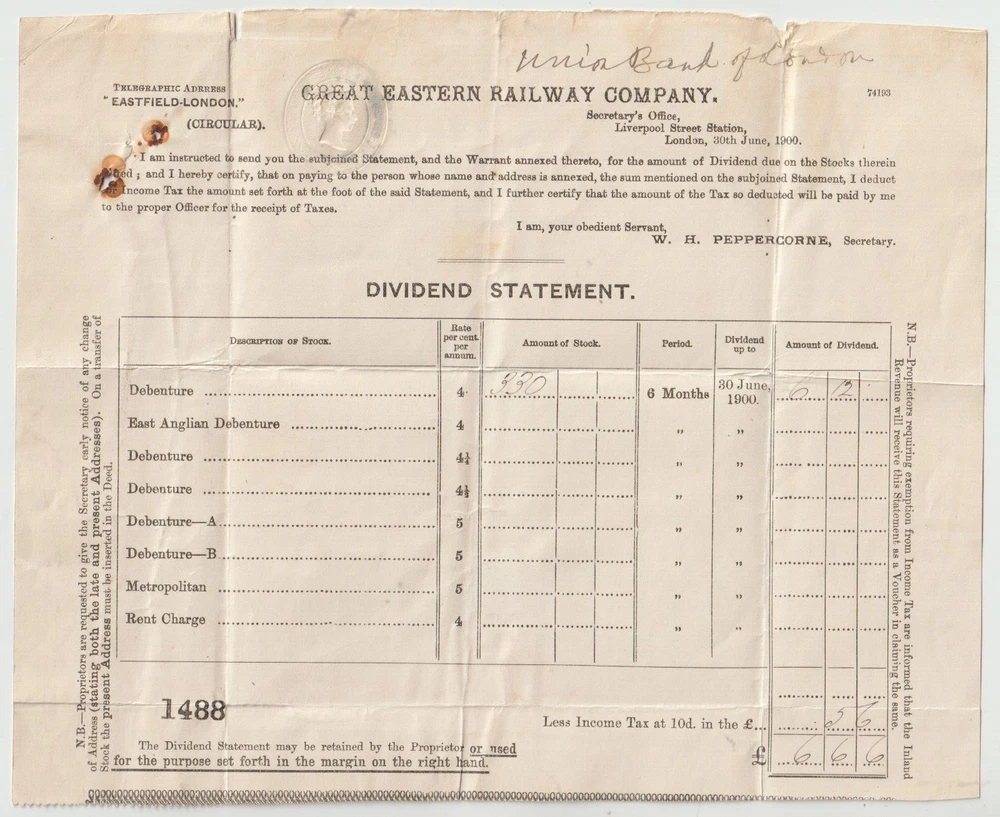 Union Bank of London
TELEGRAPHIC ADRESS
"EASTFIELD-LONDON."
GREAT EASTERN RAILWAY COMPANY.
74193
(CIRCULAR).
Secretary's Office,
Liverpool Street Station,
London, 30th June, 1900.
I am instructed to send you the subjoined Statement, and the Warrant annexed thereto, for the amount of Dividend due on the Stocks therein
; and I hereby certify, that on paying to the person whose name and address is annexed, the sum mentioned on the subjoined Statement, I deduct
Income Tax the amount set forth at the foot of the said Statement, and I further certify that the amount of the Tax so deducted will be paid by me
to the proper Officer for the receipt of Taxes.
I am, your obedient Servant,
W. H. PEPPERCORNE, Secretary.
DIVIDEND STATEMENT.
N.B.—Proprietors are requested to give the Secretary early notice of any change
of Address (stating both the late and present Addresses). On a transfer of
Stock the present Address must be inserted in the Deed.
DESCRIPTION OF STOCK. Rate per cent. per annum. Amount of Stock. Period. Dividend up to Amount of Dividend.
Debenture 4 330 6 Months 30 June, 1900. 6 12
East Anglian Debenture 4 " "
Debenture 4¼ " "
Debenture 4½ " "
Debenture—A 5 " "
Debenture—B 5 " "
Metropolitan 5 " "
Rent Charge 4 " "
N.B.—Proprietors requiring exemption from Income Tax are informed that the Inland
Revenue will receive this Statement as a Voucher in claiming the same.
1488
Less Income Tax at 10d. in the £... 5 6
The Dividend Statement may be retained by the Proprietor or used
for the purpose set forth in the margin on the right hand.
£ 6 6 6